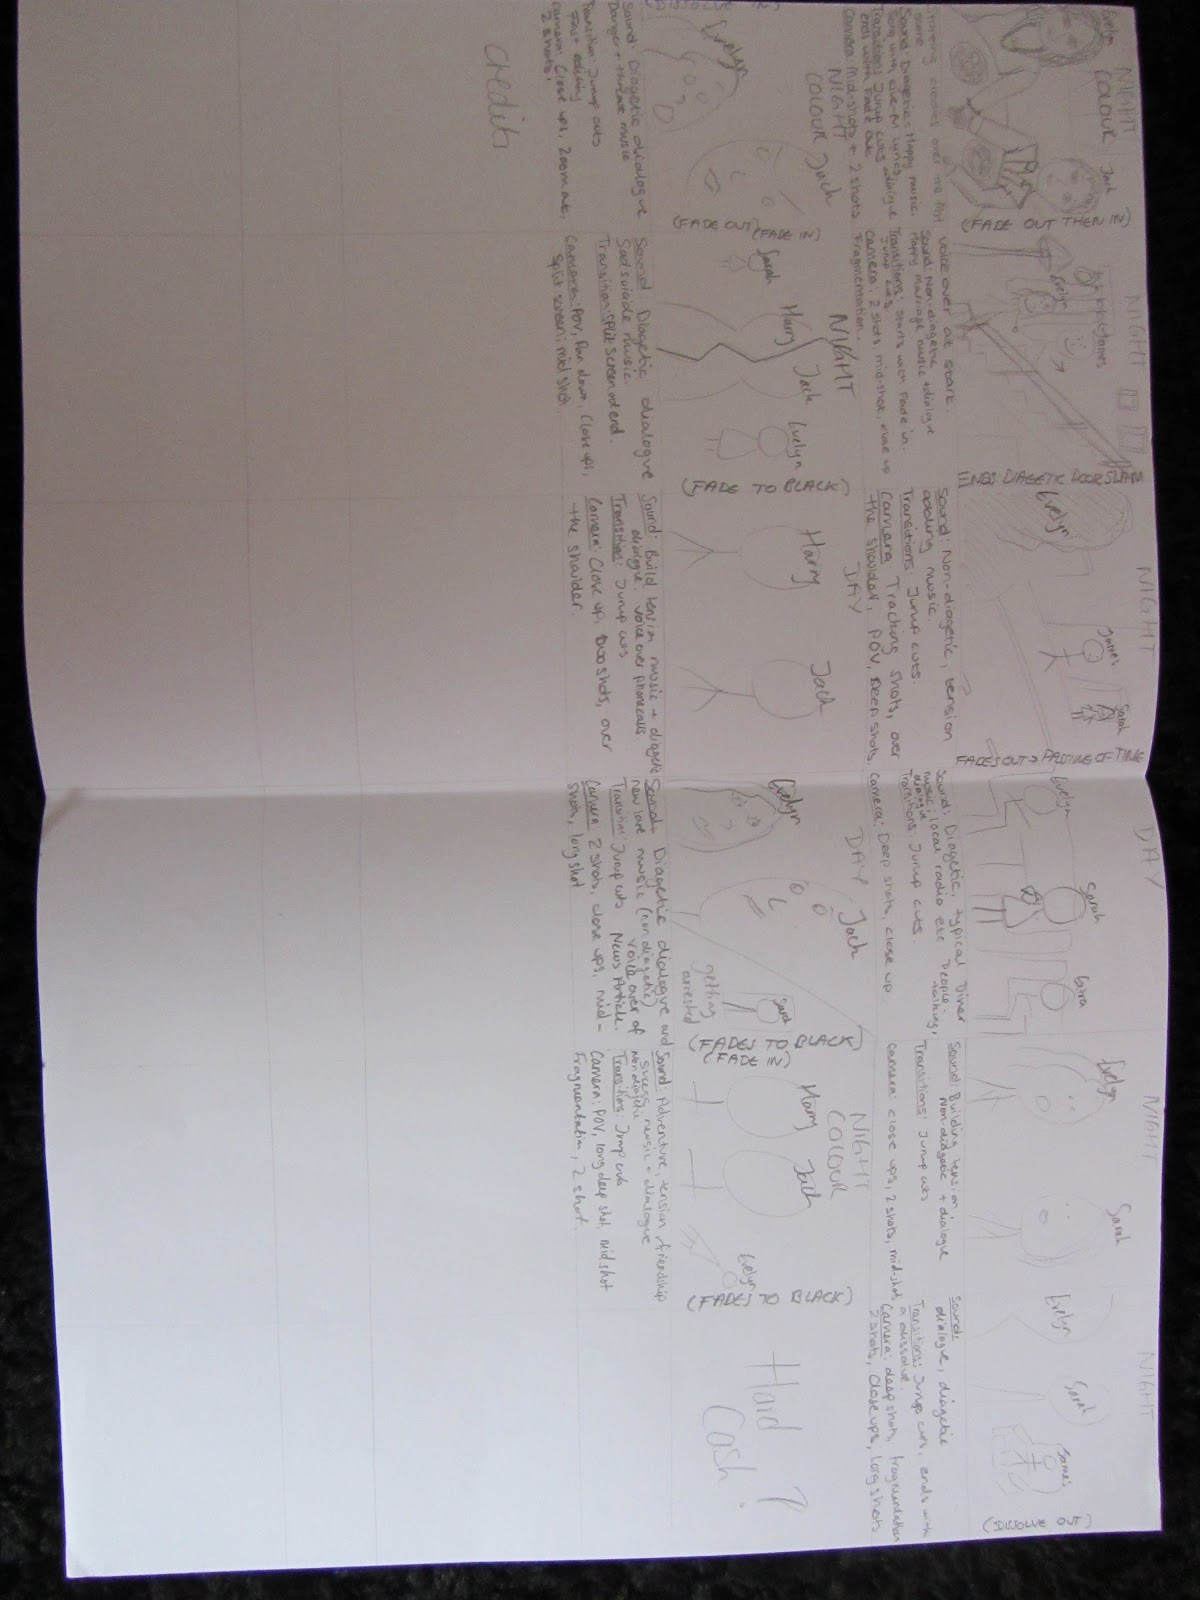 NIGHT
COLOUR
Evelyn
Jack
(FADE OUT THEN IN)
Sound: Diagetic: Happy music.
Song with lyrics,
dialogue
Transitions: Jump cuts
ends with Fade out
Camera: Mid-shots + 2 shots
NIGHT
Evelyn
James
ENDS DIAGETIC DOOR SLAM
Voice over at start.
Sound: Non-diagetic
Happy marriage music + dialogue
Transitions: Starts with Fade in.
Jump cuts
Camera: 2 shots, mid-shot, close up
Fragmentation.
NIGHT
Evelyn
James
Sarah
FADES OUT > PASSING OF TIME
Sound: Non-diagetic, tension
adding music.
Transitions: Jump cuts.
Camera: Tracking shots, over
the shoulder, POV, Deep shots.
DAY
Evelyn
Sarah
Sound: Diagetic, typical Diner
music; local radio etc People talking,
dialogue
Transitions: Jump cuts.
Camera: Deep shots, close up
NIGHT
Evelyn
Sarah
Sound: Building tension
Non-diagetic + dialogue
Transitions: Jump cuts
camera: close ups, 2 shots, mid-shots
NIGHT
Evelyn
Sarah
James
(DISSOLVE OUT)
Sound:
dialogue, diagetic
Transitions: Jump cuts, ends with
a dissolve.
Camera: deep shots, fragmentation
2 shots, close ups, long shots
(DISSOLVE IN)
NIGHT
COLOUR
Evelyn
Jack
(FADE OUT)
Sound: Diagetic dialogue
Danger + threat music
Transition: Jump cuts
Fast editing
Camera: Close ups, zoom out,
2 shots.
(FADE IN)
NIGHT
Sarah
Harry
Jack
Evelyn
(FADE TO BLACK)
Sound: Diagetic dialogue
Sad suicide music.
Transition: Split screen at end.
Camera: POV, Pan down, Close ups,
Split screen, mid shot.
DAY
Harry
Jack
Sound: Build tension music + diagetic
dialogue voice over phone calls
Transition: Jump cuts
Camera: Close up, two shots, over
the shoulder.
DAY
Evelyn
Jack
Sarah
getting
arrested
(FADES TO BLACK)
Sound: Diagetic dialogue and
new love music (non diagetic)
voice over of
Transition: Jump cuts News Article.
Camera: 2 shots, close ups, mid-
shots, long shot
(FADE IN)
NIGHT
COLOUR
Harry
Jack
Evelyn
(FADES TO BLACK)
Sound: Adventure, tension, friendship
success music + dialogue
Non diagetic
Transitions: Jump cuts
Camera: POV, long deep shot, mid shot
Fragmentation, 2 shot.
Hard
Cash?
Credits